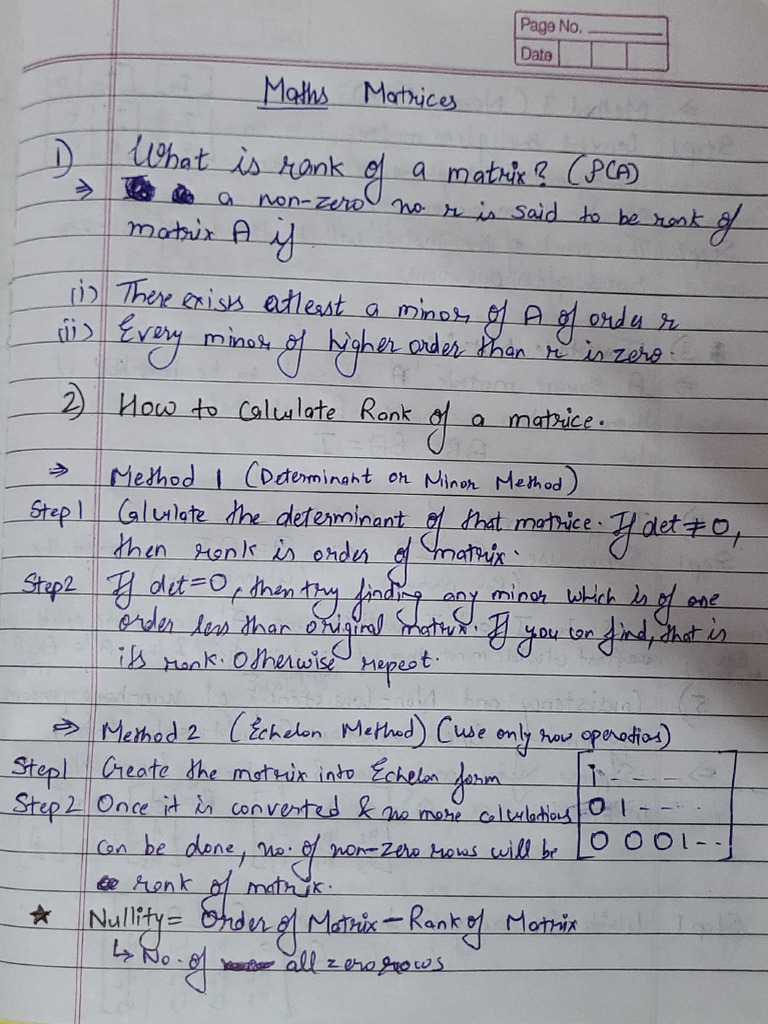 Page No.
Date
Maths Matrices
1) What is rank of a matrix? (ρ(A)
⇒ a non-zero no r is said to be rank of
matrix A if
(i) There exists atleast a minor of A of order r
(ii) Every minor of higher order than r is zero.
2) How to calculate Rank of a matrice.
⇒ Method 1 (Determinant or Minor Method)
Step1 Calculate the determinant of that matrice. If det ≠ 0,
then rank is order of matrix.
Step2 If det=0, then try finding any minor which is of one
order less than original matrix. If you can find, that is
its rank. Otherwise repeat.
⇒ Method 2 (Echelon Method) (use only row operations)
Step1 Create the matrix into Echelon form
Step2 Once it is converted & no more calculations
can be done, no. of non-zero rows will be
rank of matrix.
1 - - - - -
0 1 - - - -
0 0 0 1 - -
★ Nullity = Order of Matrix – Rank of Matrix
↳ No. of all zero rows